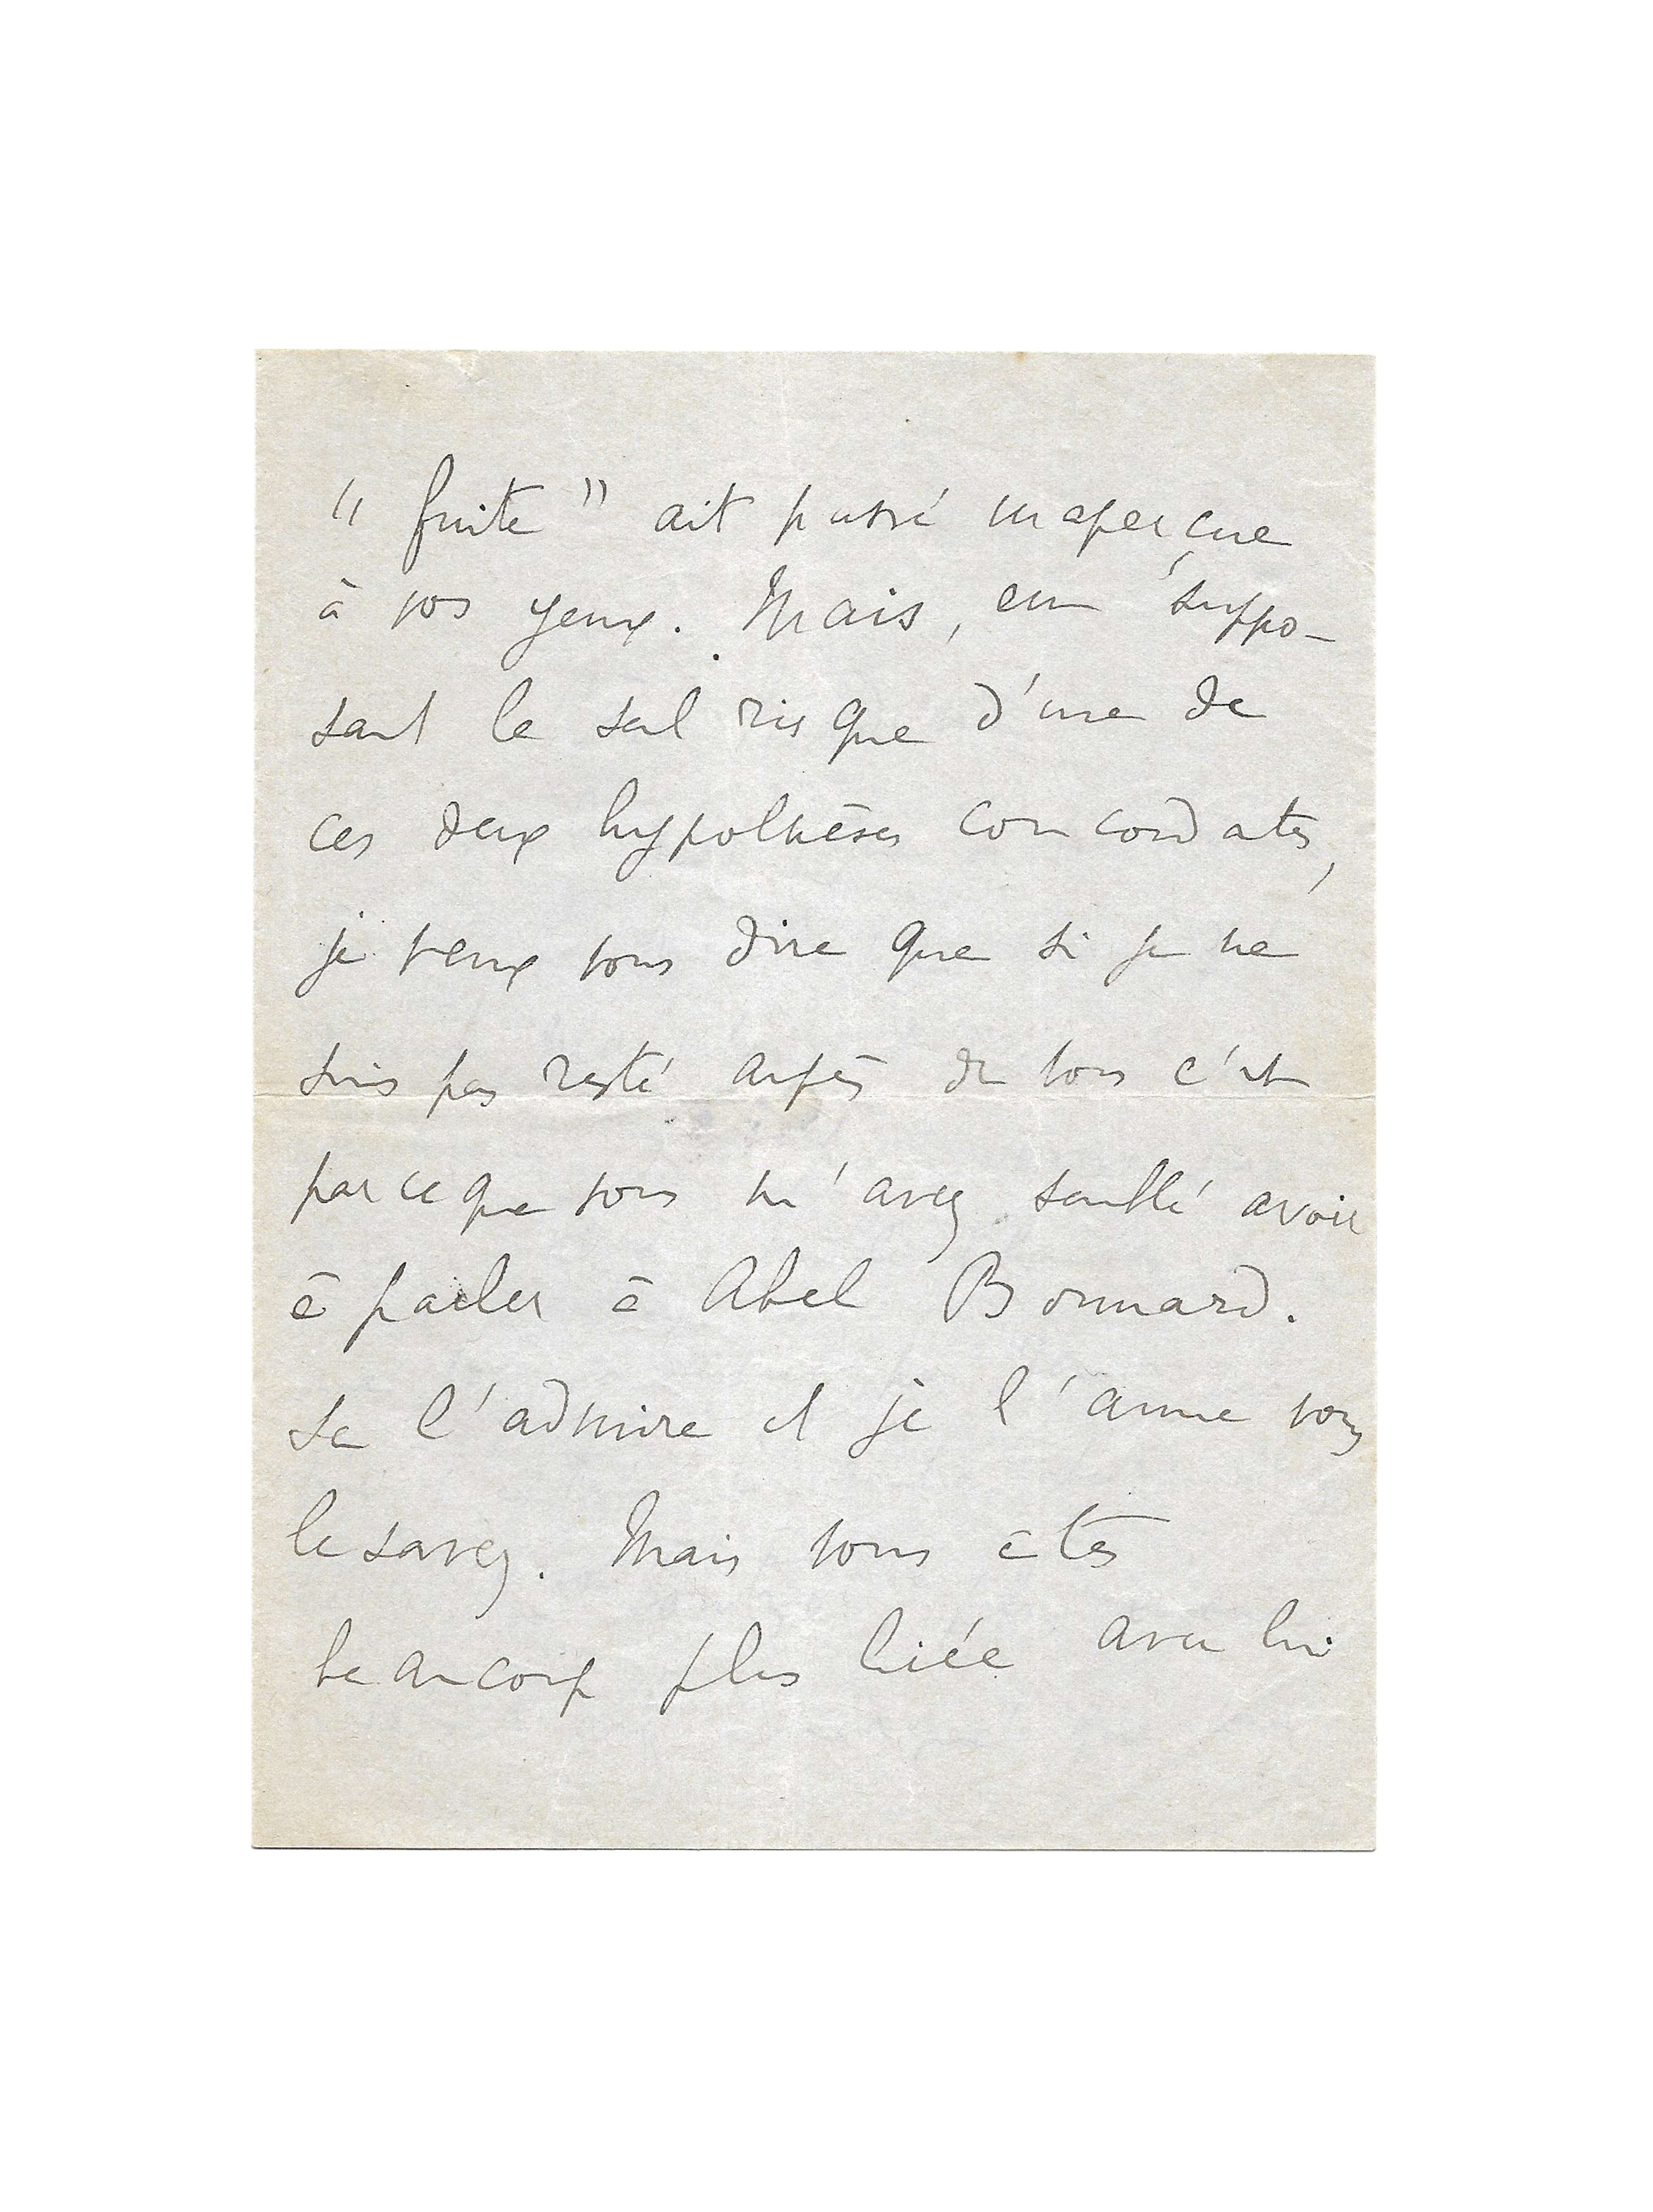 " fuite " ait passé inaperçue
à vos yeux. Mais, en suppo-
sant le seul risque d'une de
ces deux hypothèses concordates,
je veux vous dire que si je ne
suis pas resté auprès de vous c'est
parce que vous m'avez semblé avoir
à parler à Abel Bonnard.
Je l'admire et je l'aime vous
le savez. Mais vous êtes
beaucoup plus liée avec lui